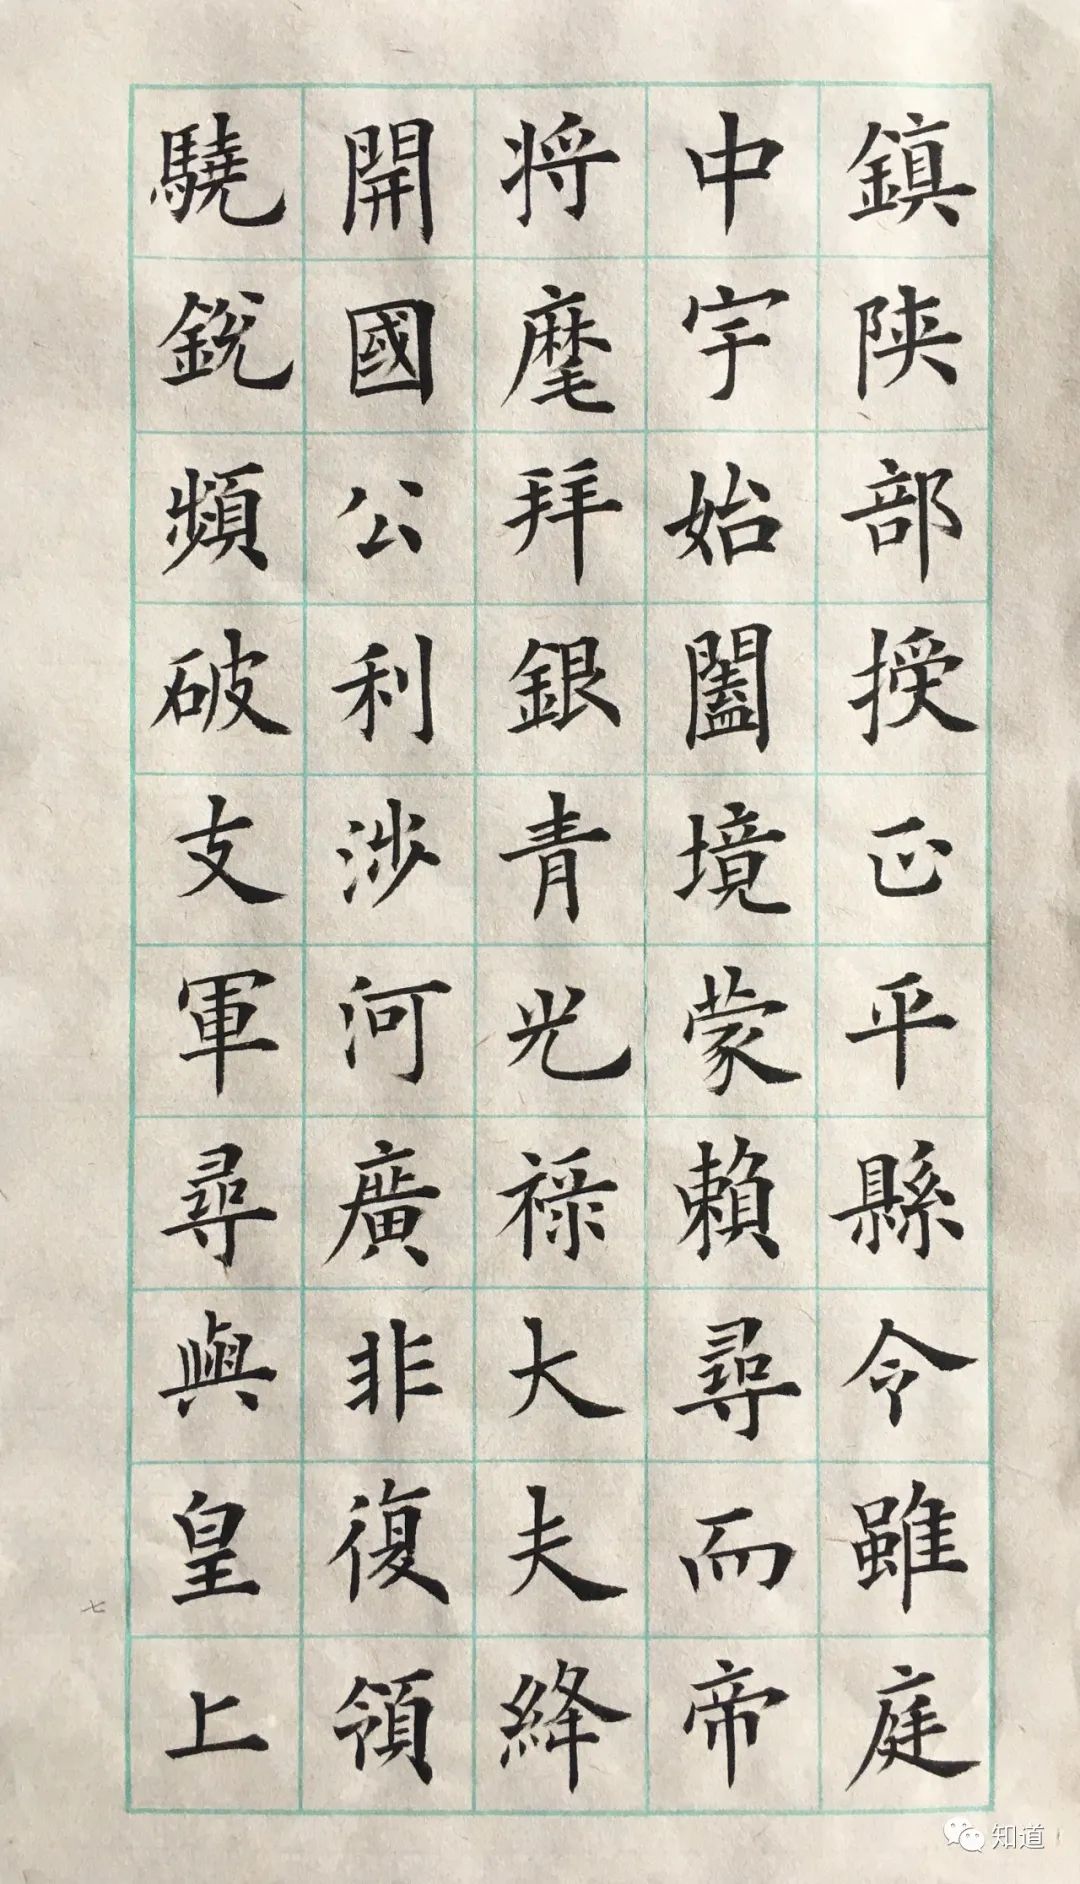 鎮陕部授正平縣令雖庭
中宇始闔境蒙賴尋而帝
将麾拜銀青光禄大夫絳
開國公利涉河廣非復領
驍銳頻破支軍尋與皇上
七
知道